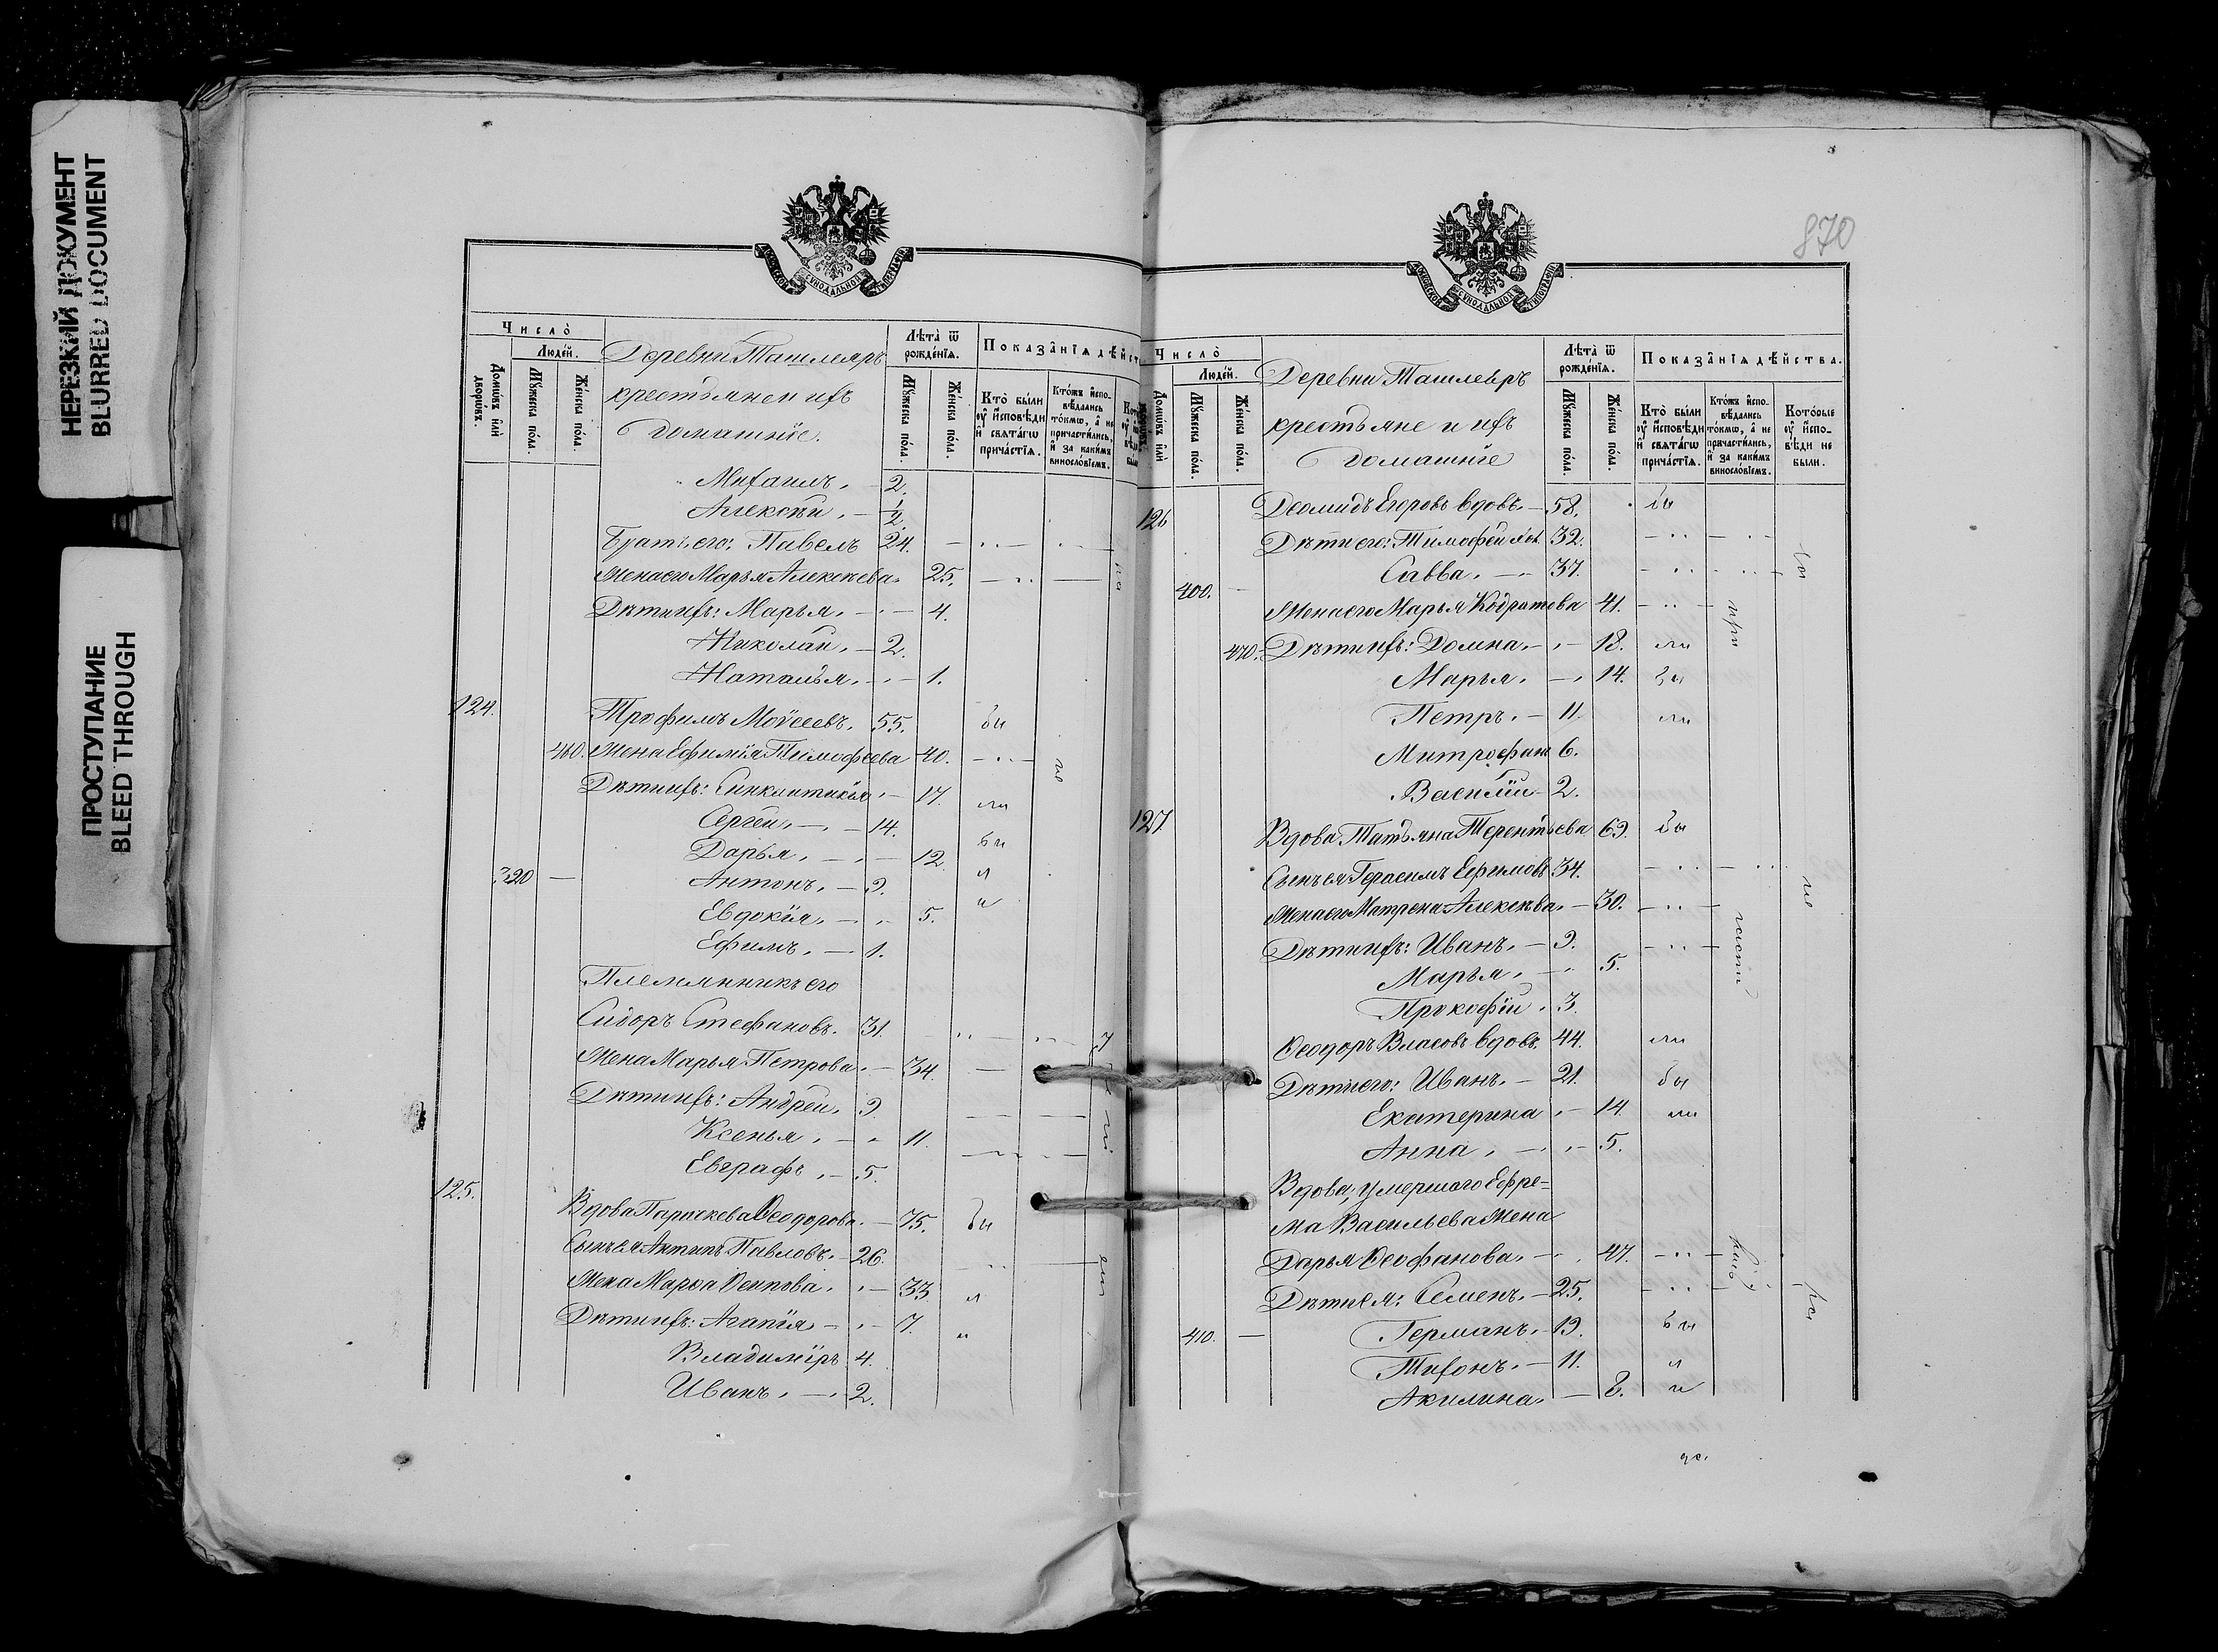 НЕРЕЗКИЙ ДОКУМЕНТ
BLURRED DOCUMENT
ПРОСТУПАНИЕ
BLEED THROUGH
МОСКОВСКОЙ СѴНОДАЛЬНОЙ ТИПОГРАФІИ
Число̀
Людей.
Домѡвъ и҆лѝ дворѡвъ.
Мꙋжеска пола.
Женска пола.
Деревни Ташлеяръ
крестьяне и ихъ
домашніе.
Лѣта̀ ѿ рожденїѧ.
Мꙋжеска пола.
Женска пола.
Показанїѧ дѣйст
Кто̀ были оу҆ и҆сповѣди и҆ свѧтагѡ причастїѧ.
Ктожъ и҆сповѣдались токмѡ, а҆ не причастились, и҆ за какимъ винословїемъ.
Михаилъ. — 2.
Алексѣй. — 1/2.
Братъ его: Павелъ 24.
Жена его Марья Алексѣева. 25.
Дѣти ихъ: Марья. — 4.
Николай. — 2.
Наталья. — 1.
124. Трофимъ Моѵсеевъ. 55. бы
460. Жена Ефимія Тимофеева 40.
Дѣти ихъ: Синклитикія. — 17. ли
Сергей. — 14. бы
Дарья. — 12. л
320 — Антонъ. — 9. и
Евдокія. — 5.
Ефимъ. — 1.
Племянникъ его
Сидоръ Стефановъ. 31.
Жена Марья Петрова. — 34.
Дѣти ихъ: Андрей. 9.
Ксенья. — 11.
Евграфъ. — 5.
125. Вдова Параскева Ѳеодорова. — 75. бы
Сынъ ея Антипъ Павловъ. — 26.
Жена Марѳа Осипова. — 33. л
Дѣти ихъ: Агапія. — 7. и
Владиміръ 4.
Иванъ. — 2.
870
МОСКОВСКОЙ СѴНОДАЛЬНОЙ ТИПОГРАФІИ
Число̀
Людей.
Домѡвъ и҆лѝ
Мꙋжеска пола.
Женска пола.
Деревни Ташлеяръ
крестьяне и ихъ
домашніе
Лѣта̀ ѿ рожденїѧ.
Мꙋжеска пола.
Женска пола.
Показанїѧ дѣйства.
Кто̀ были оу҆ и҆сповѣди и҆ свѧтагѡ причастїѧ.
Ктожъ и҆сповѣдались токмѡ, а҆ не причастились, и҆ за какимъ винословїемъ.
Которые оу҆ и҆сповѣди не были.
126 Деомидъ Егоровъ вдовъ. — 58. бы
Дѣти его: Тимофей 32.
400. — Савва. — 37.
Жена его Марья Кодратова 41.
470. Дѣти ихъ: Домна. — 18. ли
Марья. — 14. бы
Петръ. — 11. ли
Митрофанъ 6.
Василій 2.
127. Вдова Татьяна Терентьева 69. бы
Сынъ ея Герасимъ Ефимовъ 34.
Жена его Матрона Алексѣева. — 30.
Дѣти ихъ: Иванъ. — 9.
Марья. — 5.
Прокофій. 3.
Ѳеодоръ Власовъ вдовъ. 44. ли
Дѣти его: Иванъ. — 21. бы
Екатерина. — 14. ли
Анна. — 5.
Вдова, умершаго Ефре-
ма Васильева Жена
Дарья Ѳеофанова. — 47.
Дѣти ея: Семенъ. — 25.
410. — Германъ. — 19. бы
Тихонъ. — 11. л
Акилина. — 8. и